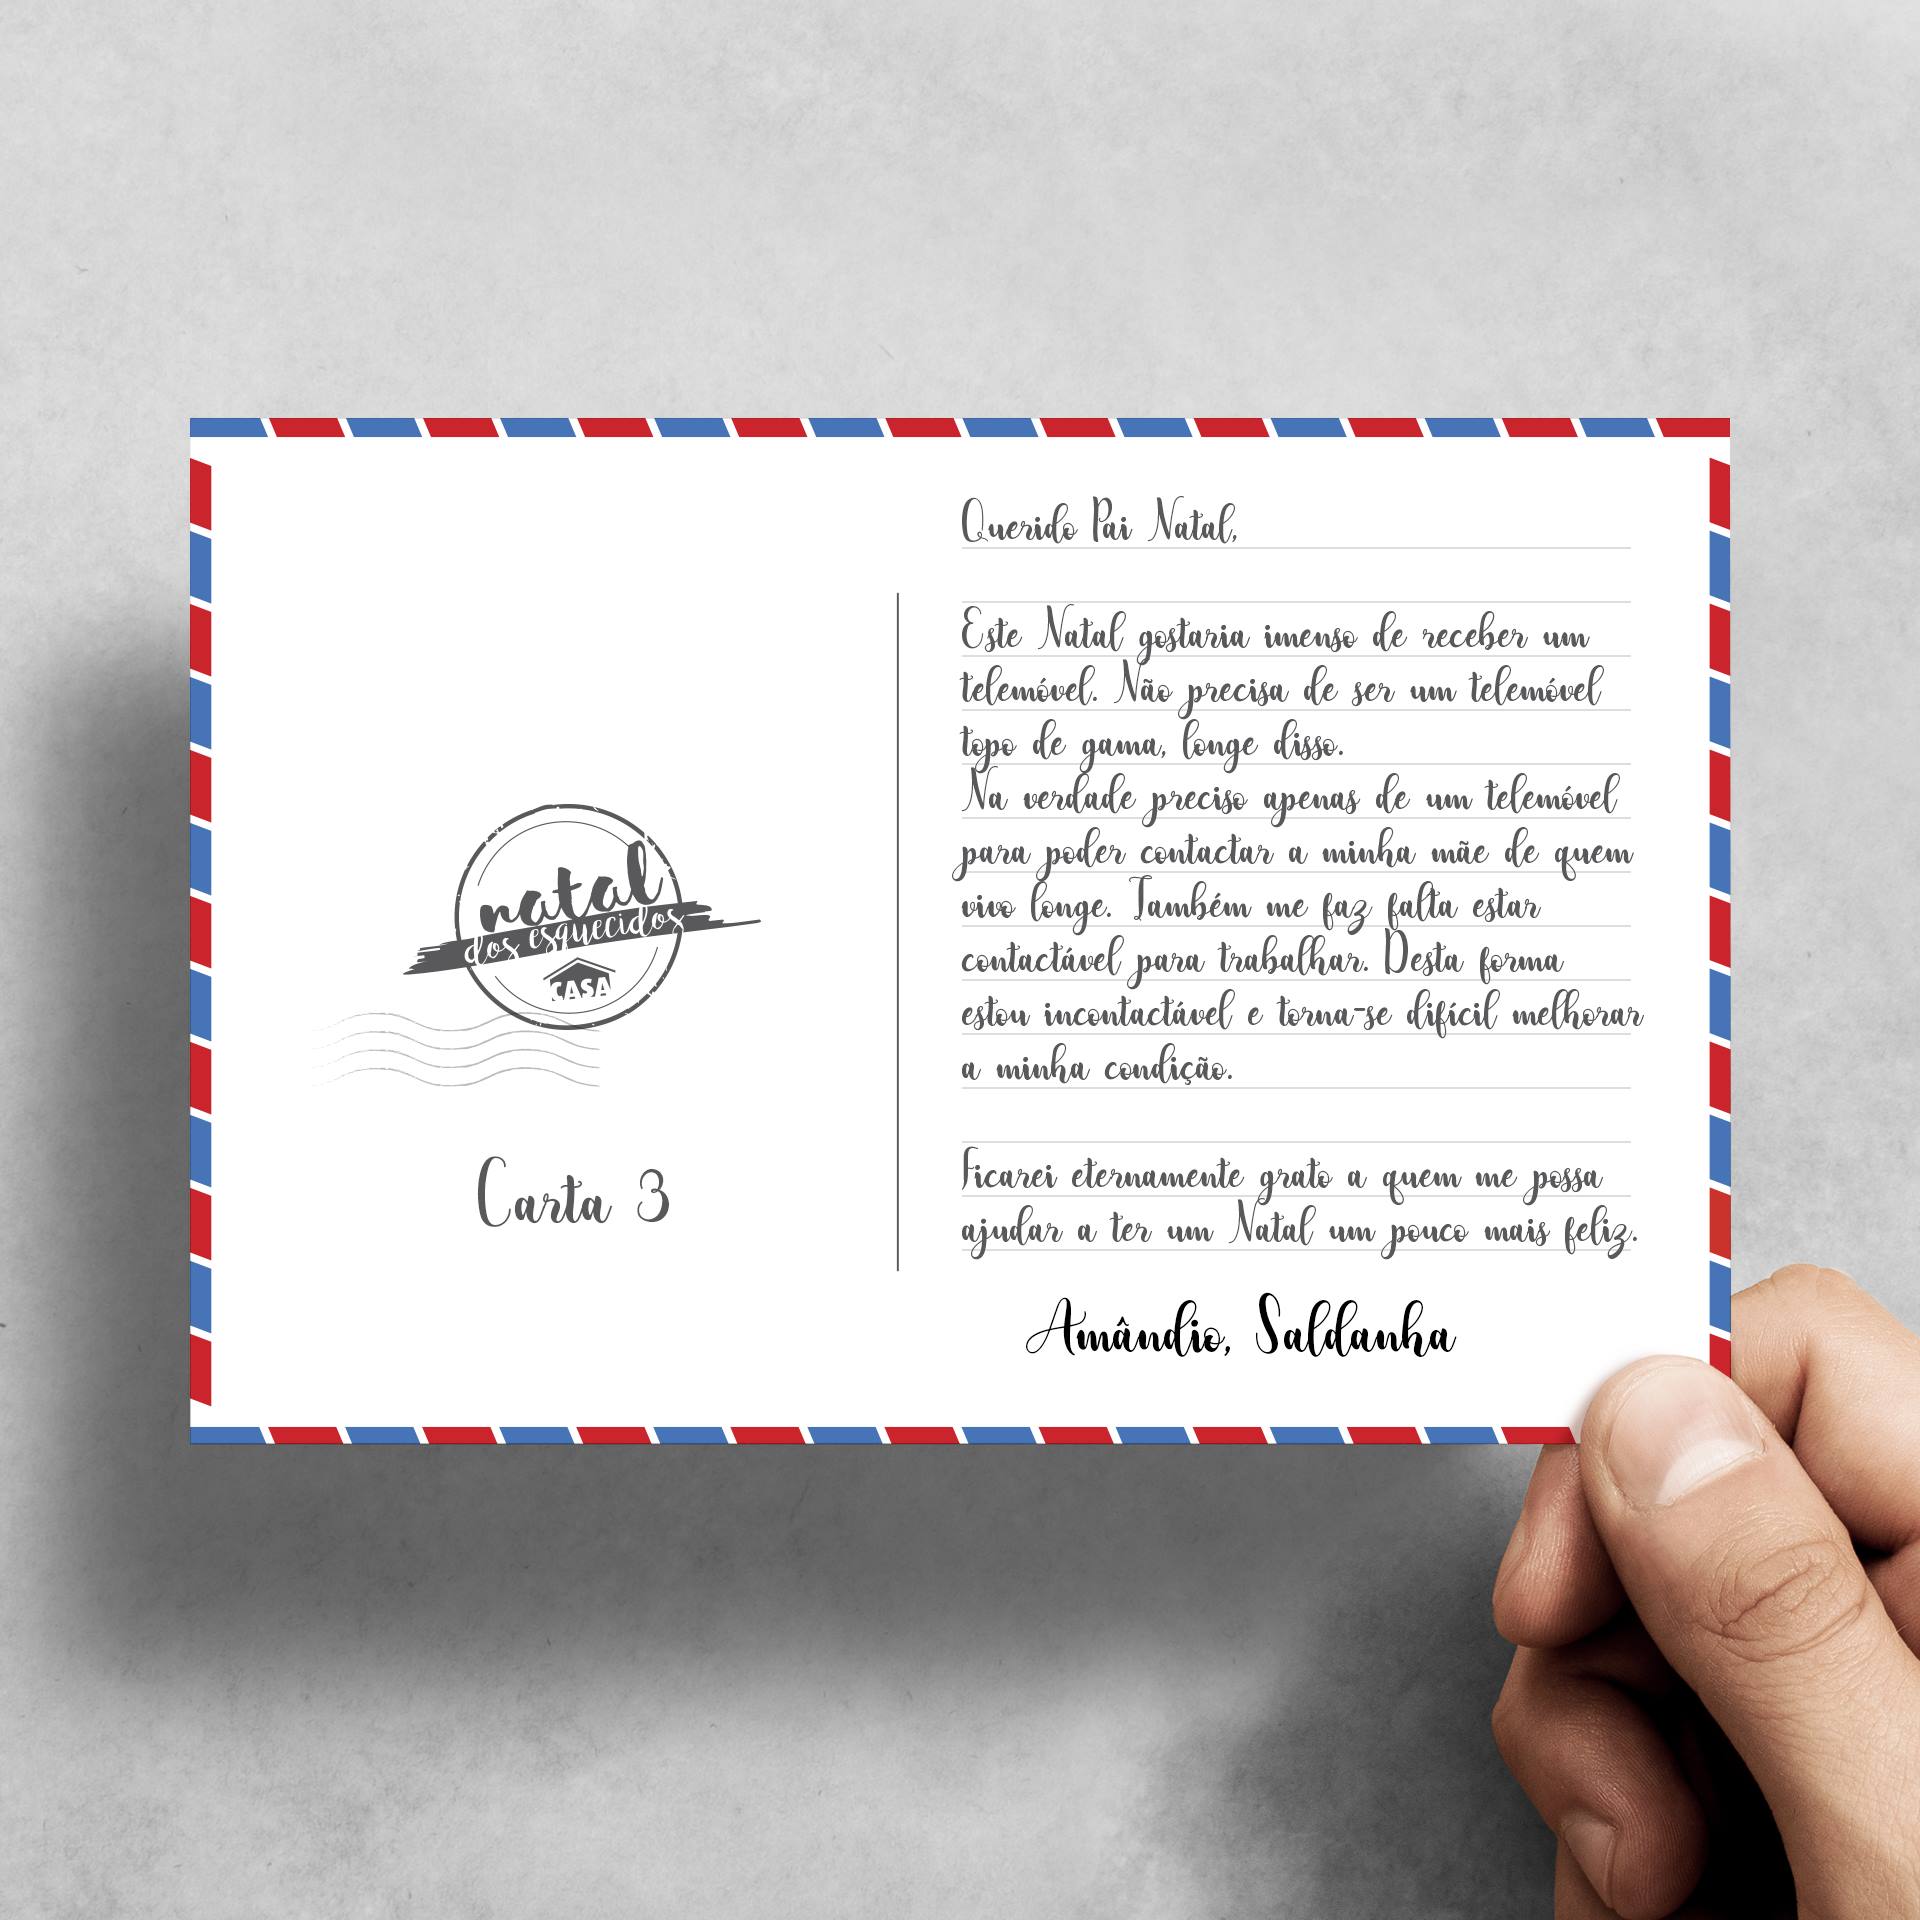 natal
dos esquecidos
CASA
Carta 3
Querido Pai Natal,
Este Natal gostaria imenso de receber um
telemóvel. Não precisa de ser um telemóvel
topo de gama, longe disso.
Na verdade preciso apenas de um telemóvel
para poder contactar a minha mãe de quem
vivo longe. Também me faz falta estar
contactável para trabalhar. Desta forma
estou incontactável e torna-se difícil melhorar
a minha condição.
Ficarei eternamente grato a quem me possa
ajudar a ter um Natal um pouco mais feliz.
Amândio, Saldanha